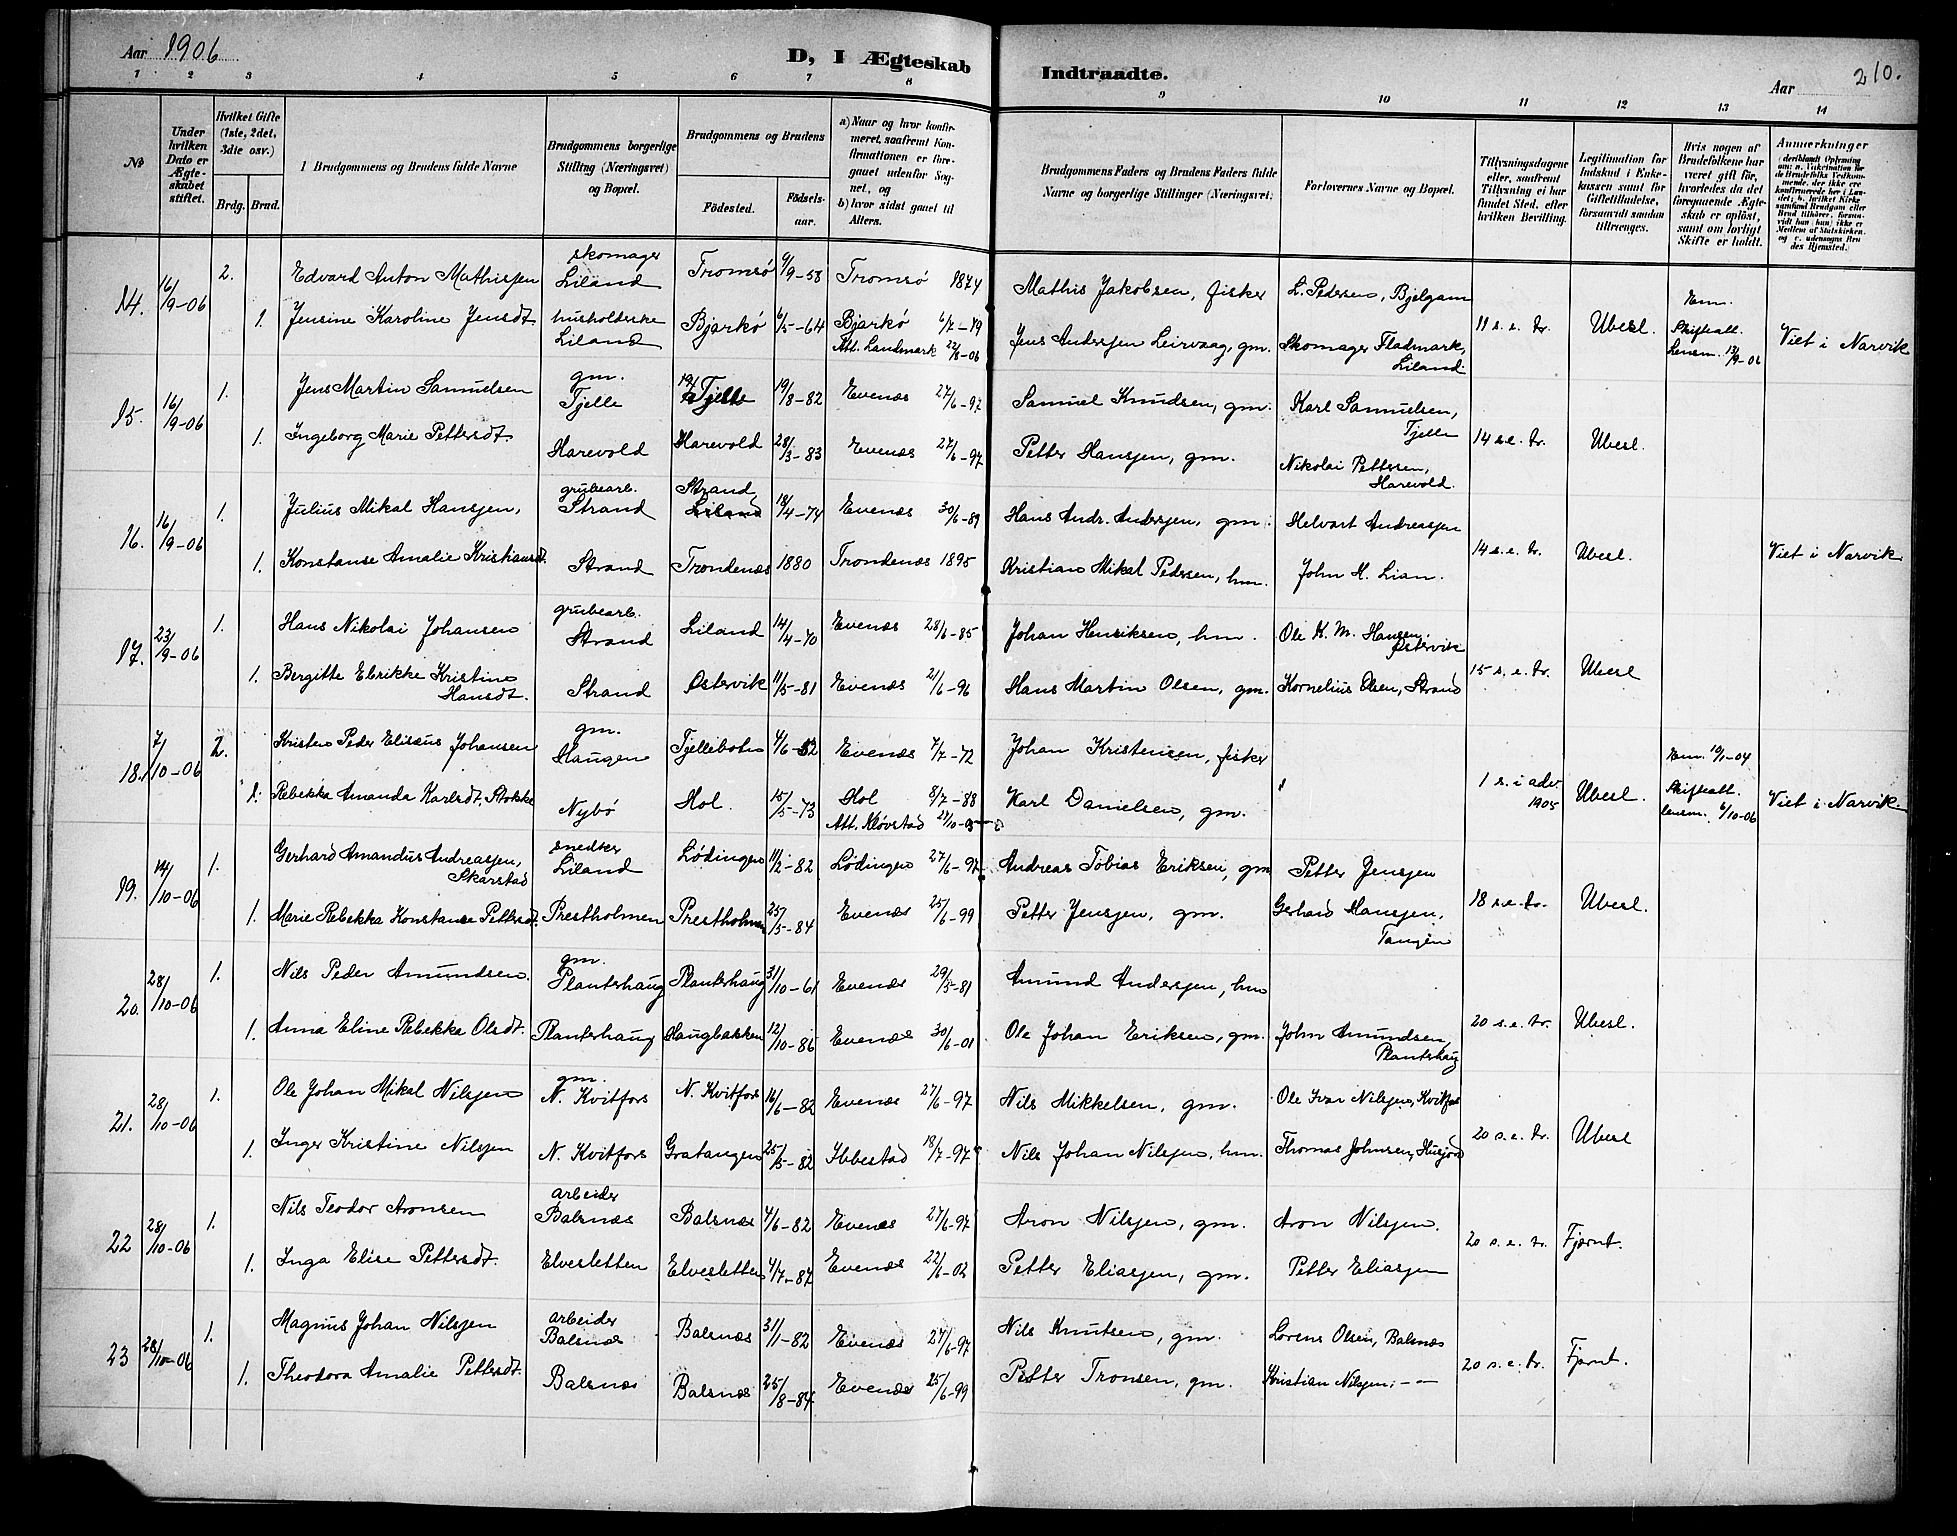 Aar 1906
D, I Ægteskab Indtraadte.
Aar 210.
1 2 3 4 5 6 7 8 9 10 11 12 13 14
No
Under hvilken Dato er Ægteskabet stiftet.
Hvilket Gifte (1ste, 2det, 3die osv.)
Brdg. Brud.
I Brudgommens og Brudens fulde Navne
Brudgommens borgerlige Stilling (Næringsvei) og Bopæl.
Brudgommens og Brudens
Fødested. Fødselsaar.
a) Naar og hvor konfirmeret, saafremt Konfirmationen er foregaaet udenfor Sognet, og
b) hvor sidst gaaet til Alters.
Brudgommens Faders og Brudens Faders fulde Navne og borgerlige Stillinger (Næringsvei)
Forlovernes Navne og Bopæl.
Tillysningsdagene eller, saafremt Tillysning ei har fundet Sted, efter hvilken Bevilling.
Legitimation for Indskud i Enkekassen samt for Giftetilladelse, forsaavidt saadan tiltrænges.
Hvis nogen af Brudefolkene har været gift før, hvorledes da det foregaaende Ægteskab er opløst, samt om lovligt Skifte er holdt.
Anmærkninger
14. 16/9-06 2. Edvard Anton Mathisen skomager Liland Tromsø 9/9-58 Tromsø 1874 Mathis Jakobsen, fisker L. Pedersen, Bjelgam Enm.
1. Jensine Karoline Jensdt. husholderske Liland Bjarkö 6/5-64 Bjarkö 6/7-79 Att. Landmark 22/8-06 Jens Andersen Leirvaag, gm. Skomager Fladmark, Liland. 11 s. e. tr. Ubesl. Skifteatt. Lensm. 13/9-06 Viet i Narvik
15. 16/9-06 1. Jens Martin Samuelsen gm. Tjelle Tjelle 19/8-82 Evenæs 27/6-97 Samuel Knudsen, gm. Karl Samuelsen, Tjelle
1. Ingeborg Marie Pettersdt Harevold Harevold 28/3-83 Evenæs 27/6-97 Petter Hansen, gm. Nikolai Pettersen, Harevold. 14 s.e. tr. Ubesl.
16. 16/9-06 1. Julius Mikal Hansen, grubearb. Strand Strand, Liland 18/4-74 Evenæs 30/6-89 Hans Andr. Andersen, gm. Helvart Andreasen
1. Konstanse Amalie Kristiansdt. Strand Trondenæs 1880 Trondenæs 1895 Kristian Mikal Pedersen, hm. John H. Lian. 14 s.e. tr. Ubesl. Viet i Narvik
17. 23/9-06 1. Hans Nikolai Johansen grubearb. Strand Liland 14/4-70 Evenæs 28/6-85 Johan Henriksen, hm. Ole K. M. Hansen, Østervik
1. Bergitte Elrikke Kristine Hansdt. Strand Østervik 11/5-81 Evenæs 21/6-96 Hans Martin Olsen, gm. Kornelius Olsen, Strand 15 s. e. tr. Ubesl
18. 7/10-06 2. Kristen Peder Elisæus Johansen gm. Haugen Tjellebotn 4/6-52 Evenæs 7/7-72 Johan Kristensen, fisker Enm. 10/1-04
1. Rebekka Amanda Karlsdt. Stokke Nybö Hol. 15/5-73 Hol 8/7-88 Att. Kløvstad Karl Danielsen, gm. 1 s. i adv. 1905 Ubesl. Skifteatt. lensm. 6/10-06 Viet i Narvik
19. 14/10-06 1. Gerhard Amandus Andreasen, Skarstad snedker Liland Lødingen 11/2-82 Lødingen 27/6-97 Andreas Tobias Eriksen, gm Petter Jensen
1. Marie Rebekka Konstanse Pettersdt. Prestholmen Prestholmen 25/5-84 Evenæs 25/6-99 Petter Jensen, gm. Gerhard Hansen, Tangen 18 s.e. tr. Ubesl.
20. 28/10-06 1. Nils Peder Amundsen. gm. Planterhaug Planterhaug 31/10-61 Evenæs 29/5-81 Amund Andersen, hm
1. Anna Eline Rebekke Olsdt. Planterhaug Haugbakken 12/10-86 Evenæs 30/6-01 Ole Johan Eriksen, gm. John Amundsen, Planterhaug 20 s.e. tr. Ubesl.
21. 28/10-06 1. Ole Johan Mikal Nilsen gm. N. Kvitfors N. Kvitfors 16/6-82 Evenæs 27/6-97 Nils Mikkelsen, gm. Ole Ivar Nilsen, Kvitfors
1. Inger Kristine Nilsen N. Kvitfors Gratangen 25/5-82 Ibbestad 18/7-97 Nils Johan Nilsen, hm. Thomas Johnsen, Husjord 20 s.e. tr. Ubesl
22 28/10-06 1. Nils Teodor Aronsen arbeider Balsnæs Balsnæs 4/6-82 Evenæs 27/6-97 Aron Nilsen, gm. Aron Nilsen.
1. Inga Elise Pettersdt. Elvesletten Elvesletten 4/7-87 Evenæs 22/6-02 Petter Eliasen, gm. Petter Eliasen 20 s. e. tr Fjernt.
23 28/10-06 1. Magnus Johan Nilsen arbeider Balsnæs Balsnæs 31/1-82 Evenæs 27/6-97 Nils Knutsen, gm. Lorens Olsen, Balsnæs
1. Theodora Amalie Pettersdt. Balsnæs Balsnæs 25/8-84 Evenæs 25/6-99 Petter Tronsen, gm. Kristian Nilsen, -- 20 s.e. tr. Fjernt.